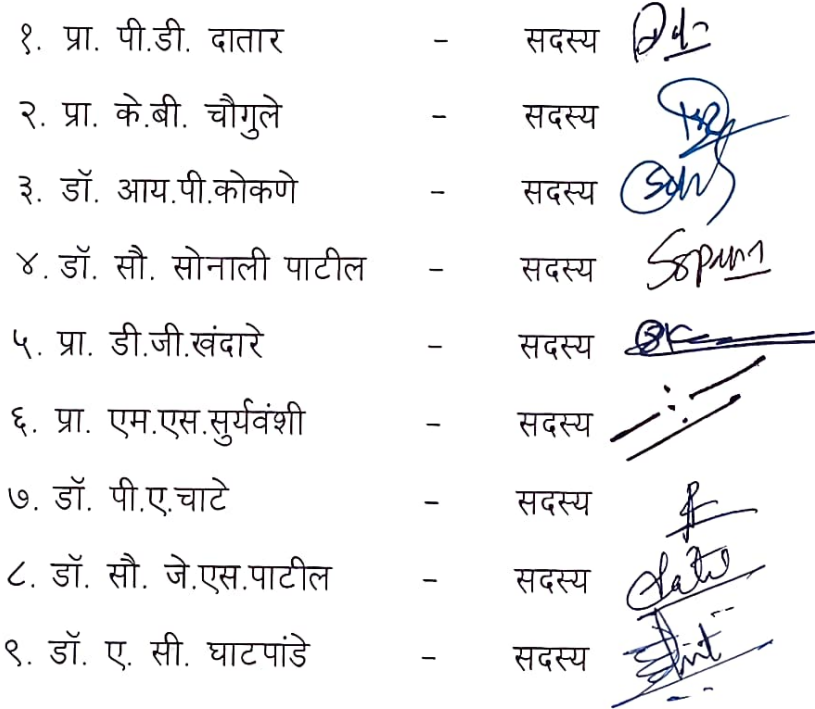 १. प्रा. पी.डी. दातार - सदस्य
२. प्रा. के.बी. चौगुले - सदस्य
३. डॉ. आय.पी.कोकणे - सदस्य
४. डॉ. सौ. सोनाली पाटील - सदस्य
५. प्रा. डी.जी.खंदारे - सदस्य
६. प्रा. एम.एस.सुर्यवंशी - सदस्य
७. डॉ. पी.ए.चाटे - सदस्य
८. डॉ. सौ. जे.एस.पाटील - सदस्य
९. डॉ. ए. सी. घाटपांडे - सदस्य